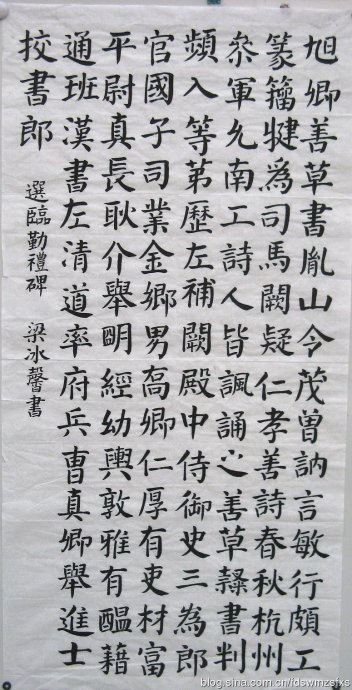 旭卿善草書胤山今茂曽訥言敏行頗工
篆籀犍為司馬闕疑仁孝善詩春秋杭州
叅軍允南工詩人皆諷誦之善草隸書判
頻入等第歷左補闕殿中侍御史三為郎
官國子司業金鄉男喬卿仁厚有吏材富
平尉真長耿介舉明經幼輿敦雅有醞藉
通班漢書左清道率府兵曹真卿舉進士
挍書郎
選臨勤禮碑 梁冰馨書
blog.sina.com.cn/idswmzsfxs